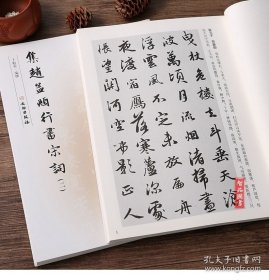 曳杖危樓去斗垂天滄
波萬頃月流煙渚掃盡
浮雲風不定未放扁舟
夜渡宿雁落寒蘆深處
悵望關河空弔影正人
集趙孟頫行書宋詞（一）
孔夫子旧书网